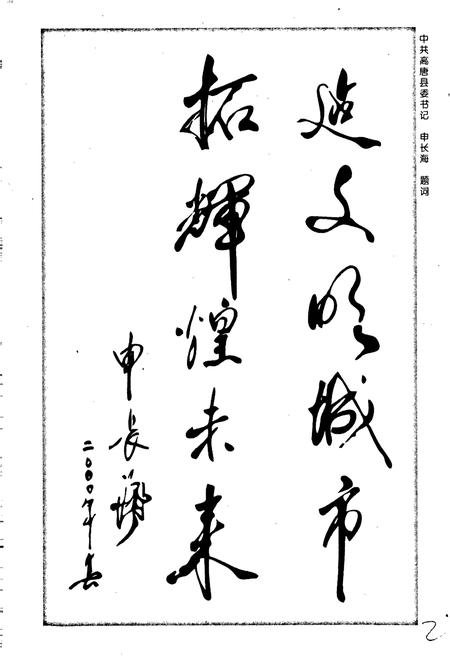 中共高唐县委书记 申长海 题词
建文明城市
拓辉煌未来
申长海
二〇〇〇年春
2